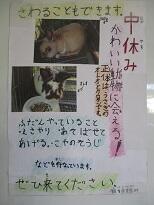 中休み
かわいい動物に会える!
正体は、うさぎの
さわることもできます。
ふだんやっていること
えさやり あそばせて
あげる。こやのそうじ
などを行なっています。
ぜひ来てください!